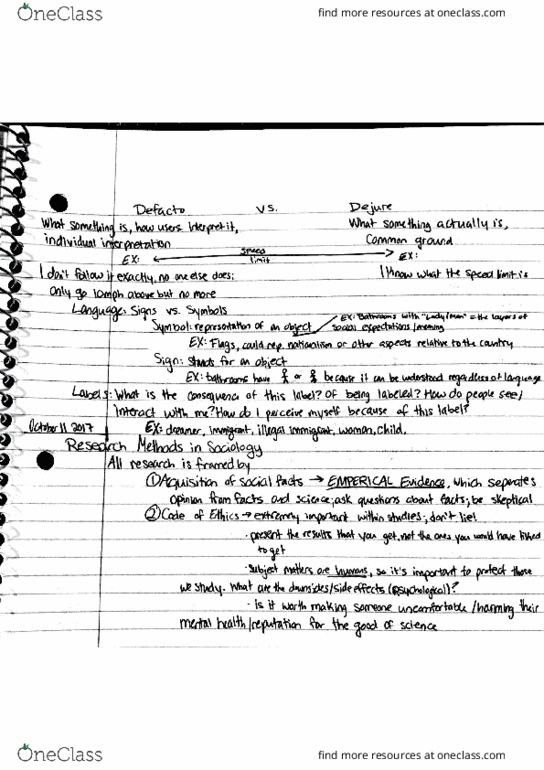 OneClass
find more resources at oneclass.com
Defacto vs. Dejure
What something is, how users interpret it, What something actually is,
individual interpretation Common ground
EX: speed limit EX:
I don't follow it exactly, no one else does; I know what the speed limit is
Only go 10mph above but no more
Language: Signs vs. Symbols
EX: Bathrooms with "Lady/Man" = the layers of
Symbol: representation of an object social expectations/meaning
EX: Flags, could rep. nationalism or other aspects relative to the country
Sign: Stands for an object
EX: bathrooms have or because it can be understood regardless of language
Labels: What is the consequence of this label? Of being labeled? How do people see/
Interact with me? How do I perceive myself because of this label?
October 11 2017 EX: dreamer, immigrant, illegal immigrant, woman, child.
Research Methods in Sociology
All research is framed by
① Acquisition of social facts → EMPERICAL Evidence, which separates
opinion from facts and science; ask questions about facts; be skeptical
② Code of Ethics → extremly important within studies; don't lie!
· present the results that you get, not the ones you would have liked
to get
· Subject matters are humans, so it's important to protect those
we study. What are the downsides/side effects (psychological)?
· Is it worth making someone uncomfortable/harming their
mental health/reputation for the good of science
OneClass
find more resources at oneclass.com